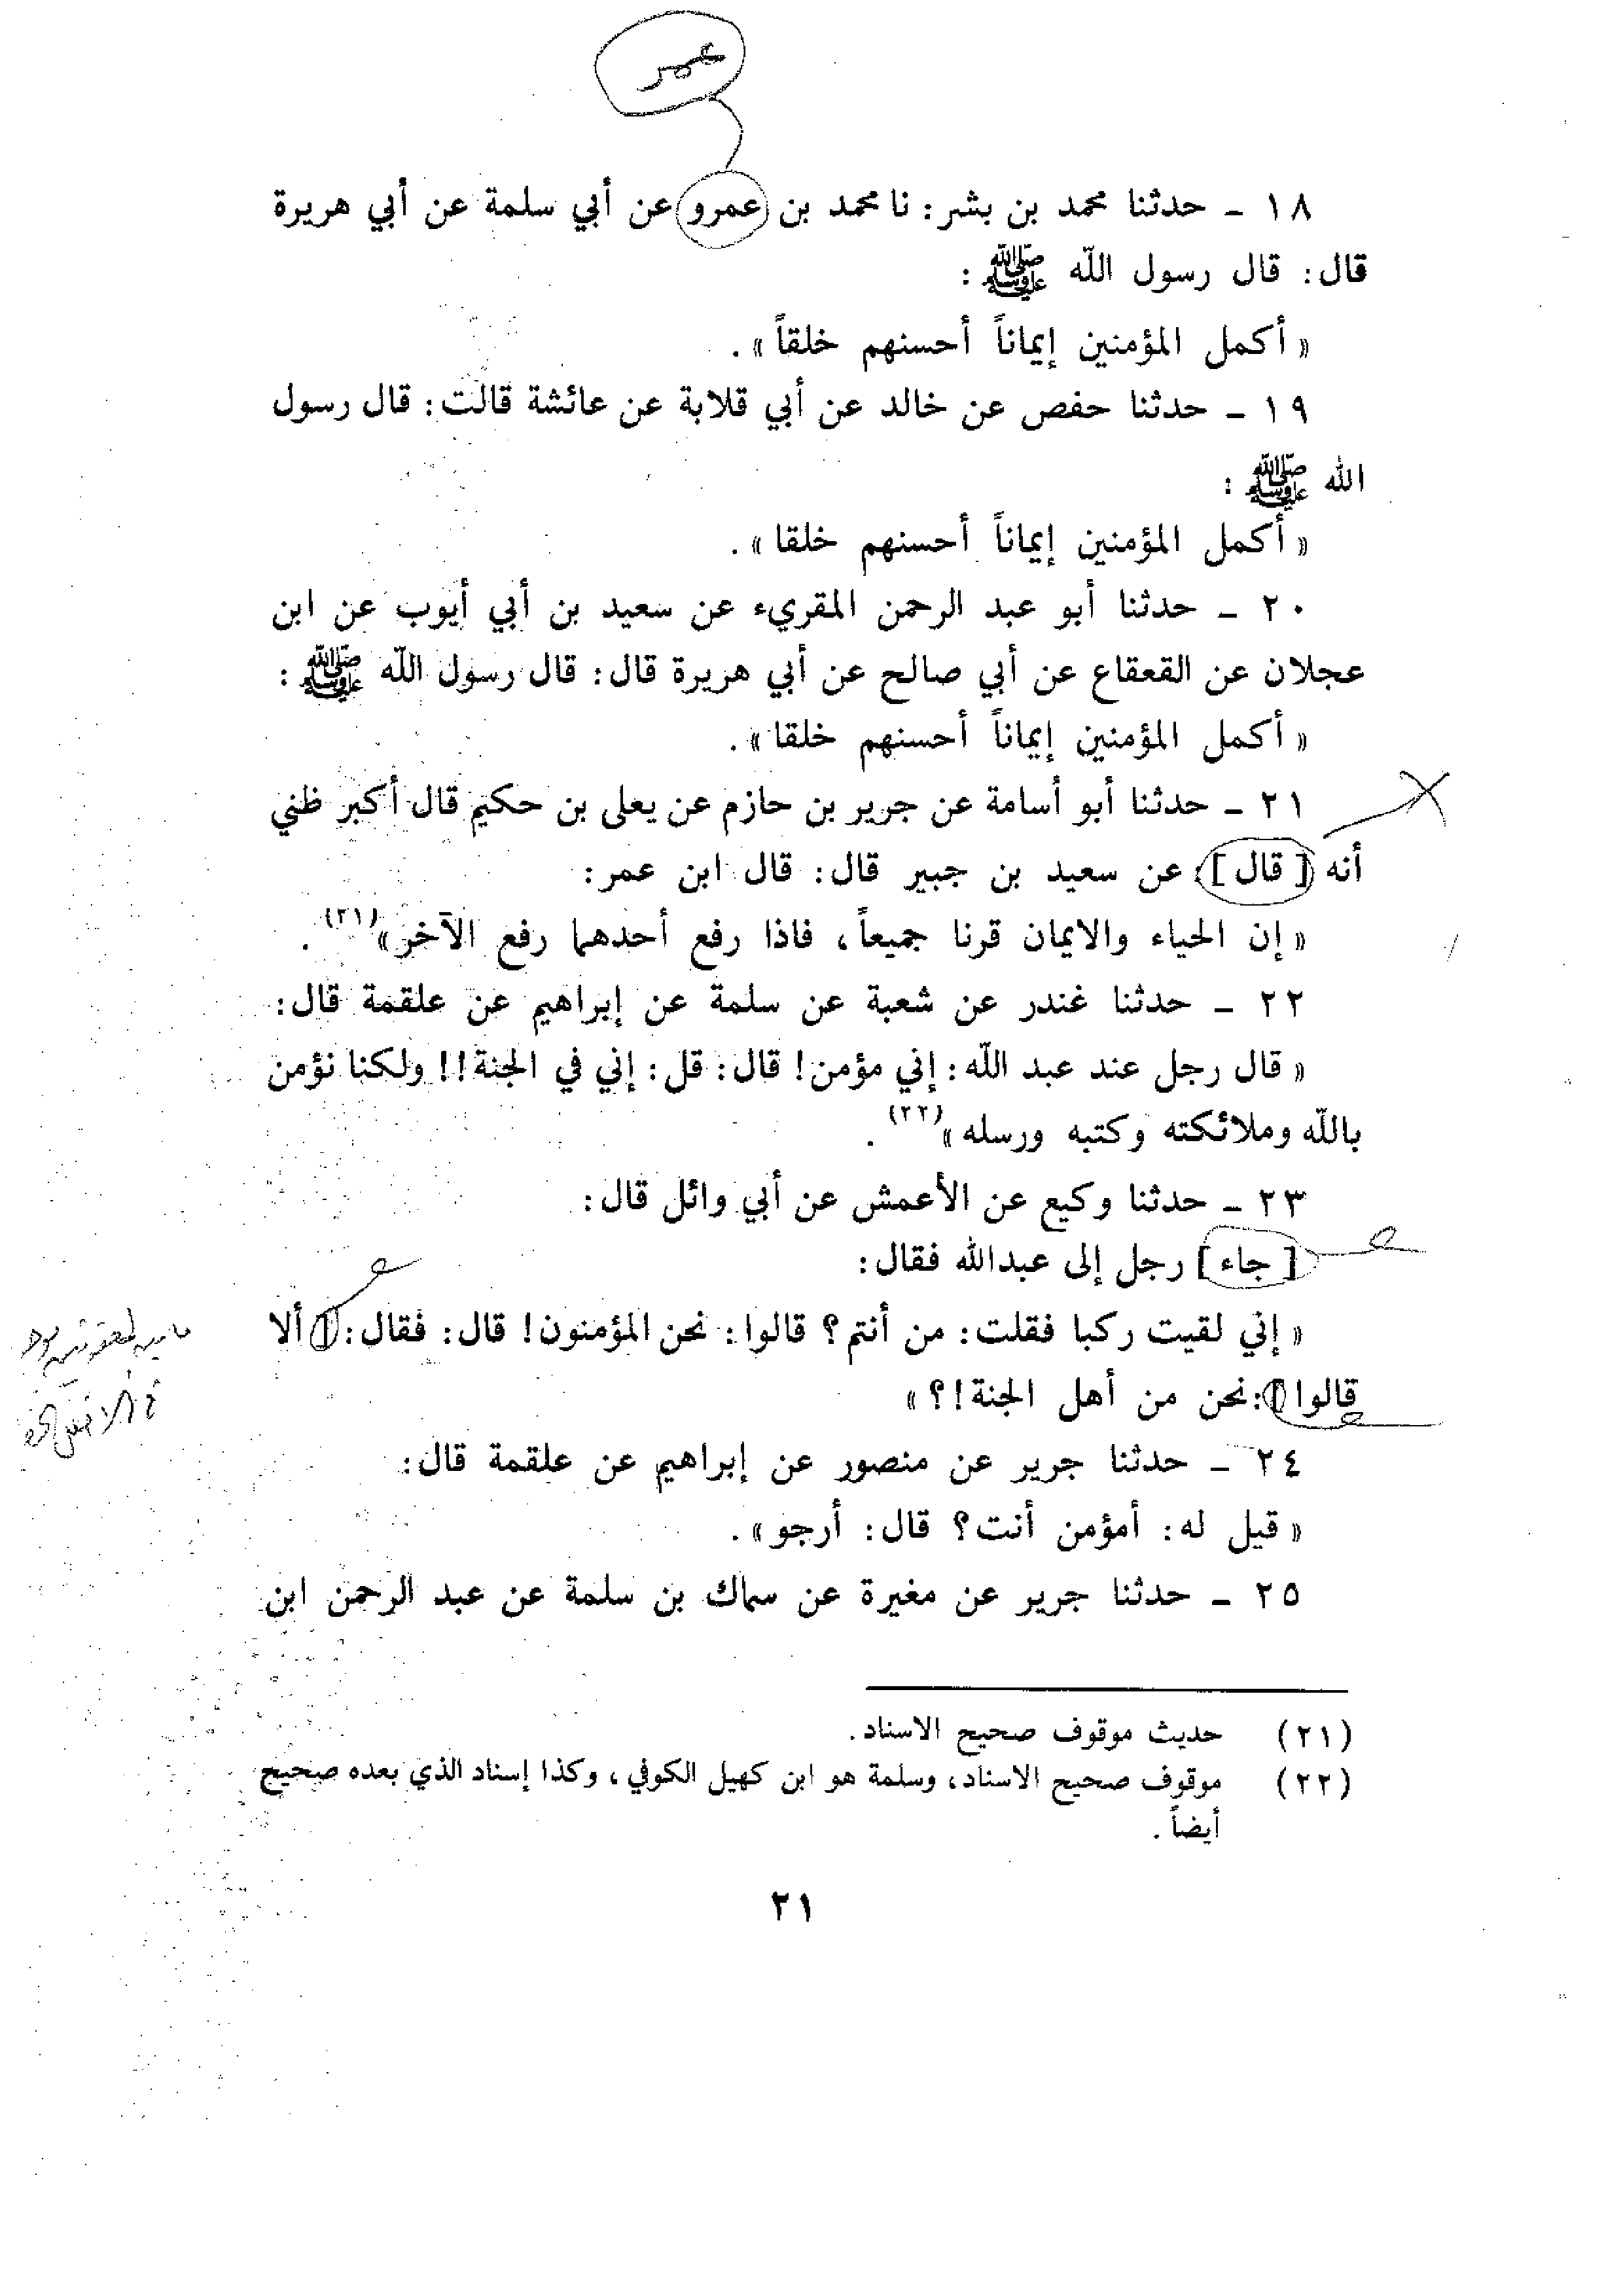 عمر
١٨ ـ حدثنا محمد بن بشر: نا محمد بن عمرو عن أبي سلمة عن أبي هريرة
قال: قال رسول الله ﷺ :
« أكمل المؤمنين إيماناً أحسنهم خلقاً » .
١٩ ـ حدثنا حفص عن خالد عن أبي قلابة عن عائشة قالت: قال رسول
الله ﷺ :
« أكمل المؤمنين إيماناً أحسنهم خلقا » .
٢٠ ـ حدثنا أبو عبد الرحمن المقريء عن سعيد بن أبي أيوب عن ابن
عجلان عن القعقاع عن أبي صالح عن أبي هريرة قال: قال رسول الله ﷺ :
« أكمل المؤمنين إيماناً أحسنهم خلقا » .
٢١ ـ حدثنا أبو أسامة عن جرير بن حازم عن يعلى بن حكيم قال أكبر ظني
أنه [ قال ] عن سعيد بن جبير قال: قال ابن عمر:
« إن الحياء والايمان قرنا جميعاً ، فاذا رفع أحدهما رفع الآخر » (٢١) .
٢٢ ـ حدثنا غندر عن شعبة عن سلمة عن إبراهيم عن علقمة قال:
« قال رجل عند عبد الله : إني مؤمن! قال: قل: إني في الجنة!! ولكنا نؤمن
بالله وملائكته وكتبه ورسله » (٢٢) .
٢٣ ـ حدثنا وكيع عن الأعمش عن أبي وائل قال:
[ جاء ] رجل إلى عبدالله فقال:
« إني لقيت ركبا فقلت: من أنتم؟ قالوا: نحن المؤمنون! قال: فقال: [ ألا
قالوا ]: نحن من أهل الجنة!؟ »
٢٤ ـ حدثنا جرير عن منصور عن إبراهيم عن علقمة قال:
« قيل له: أمؤمن أنت؟ قال: أرجو » .
٢٥ ـ حدثنا جرير عن مغيرة عن سماك بن سلمة عن عبد الرحمن ابن
(٢١) حديث موقوف صحيح الاسناد .
(٢٢) موقوف صحيح الاسناد، وسلمة هو ابن كهيل الكوفي ، وكذا إسناد الذي بعده صحيح
أيضاً .
٢١